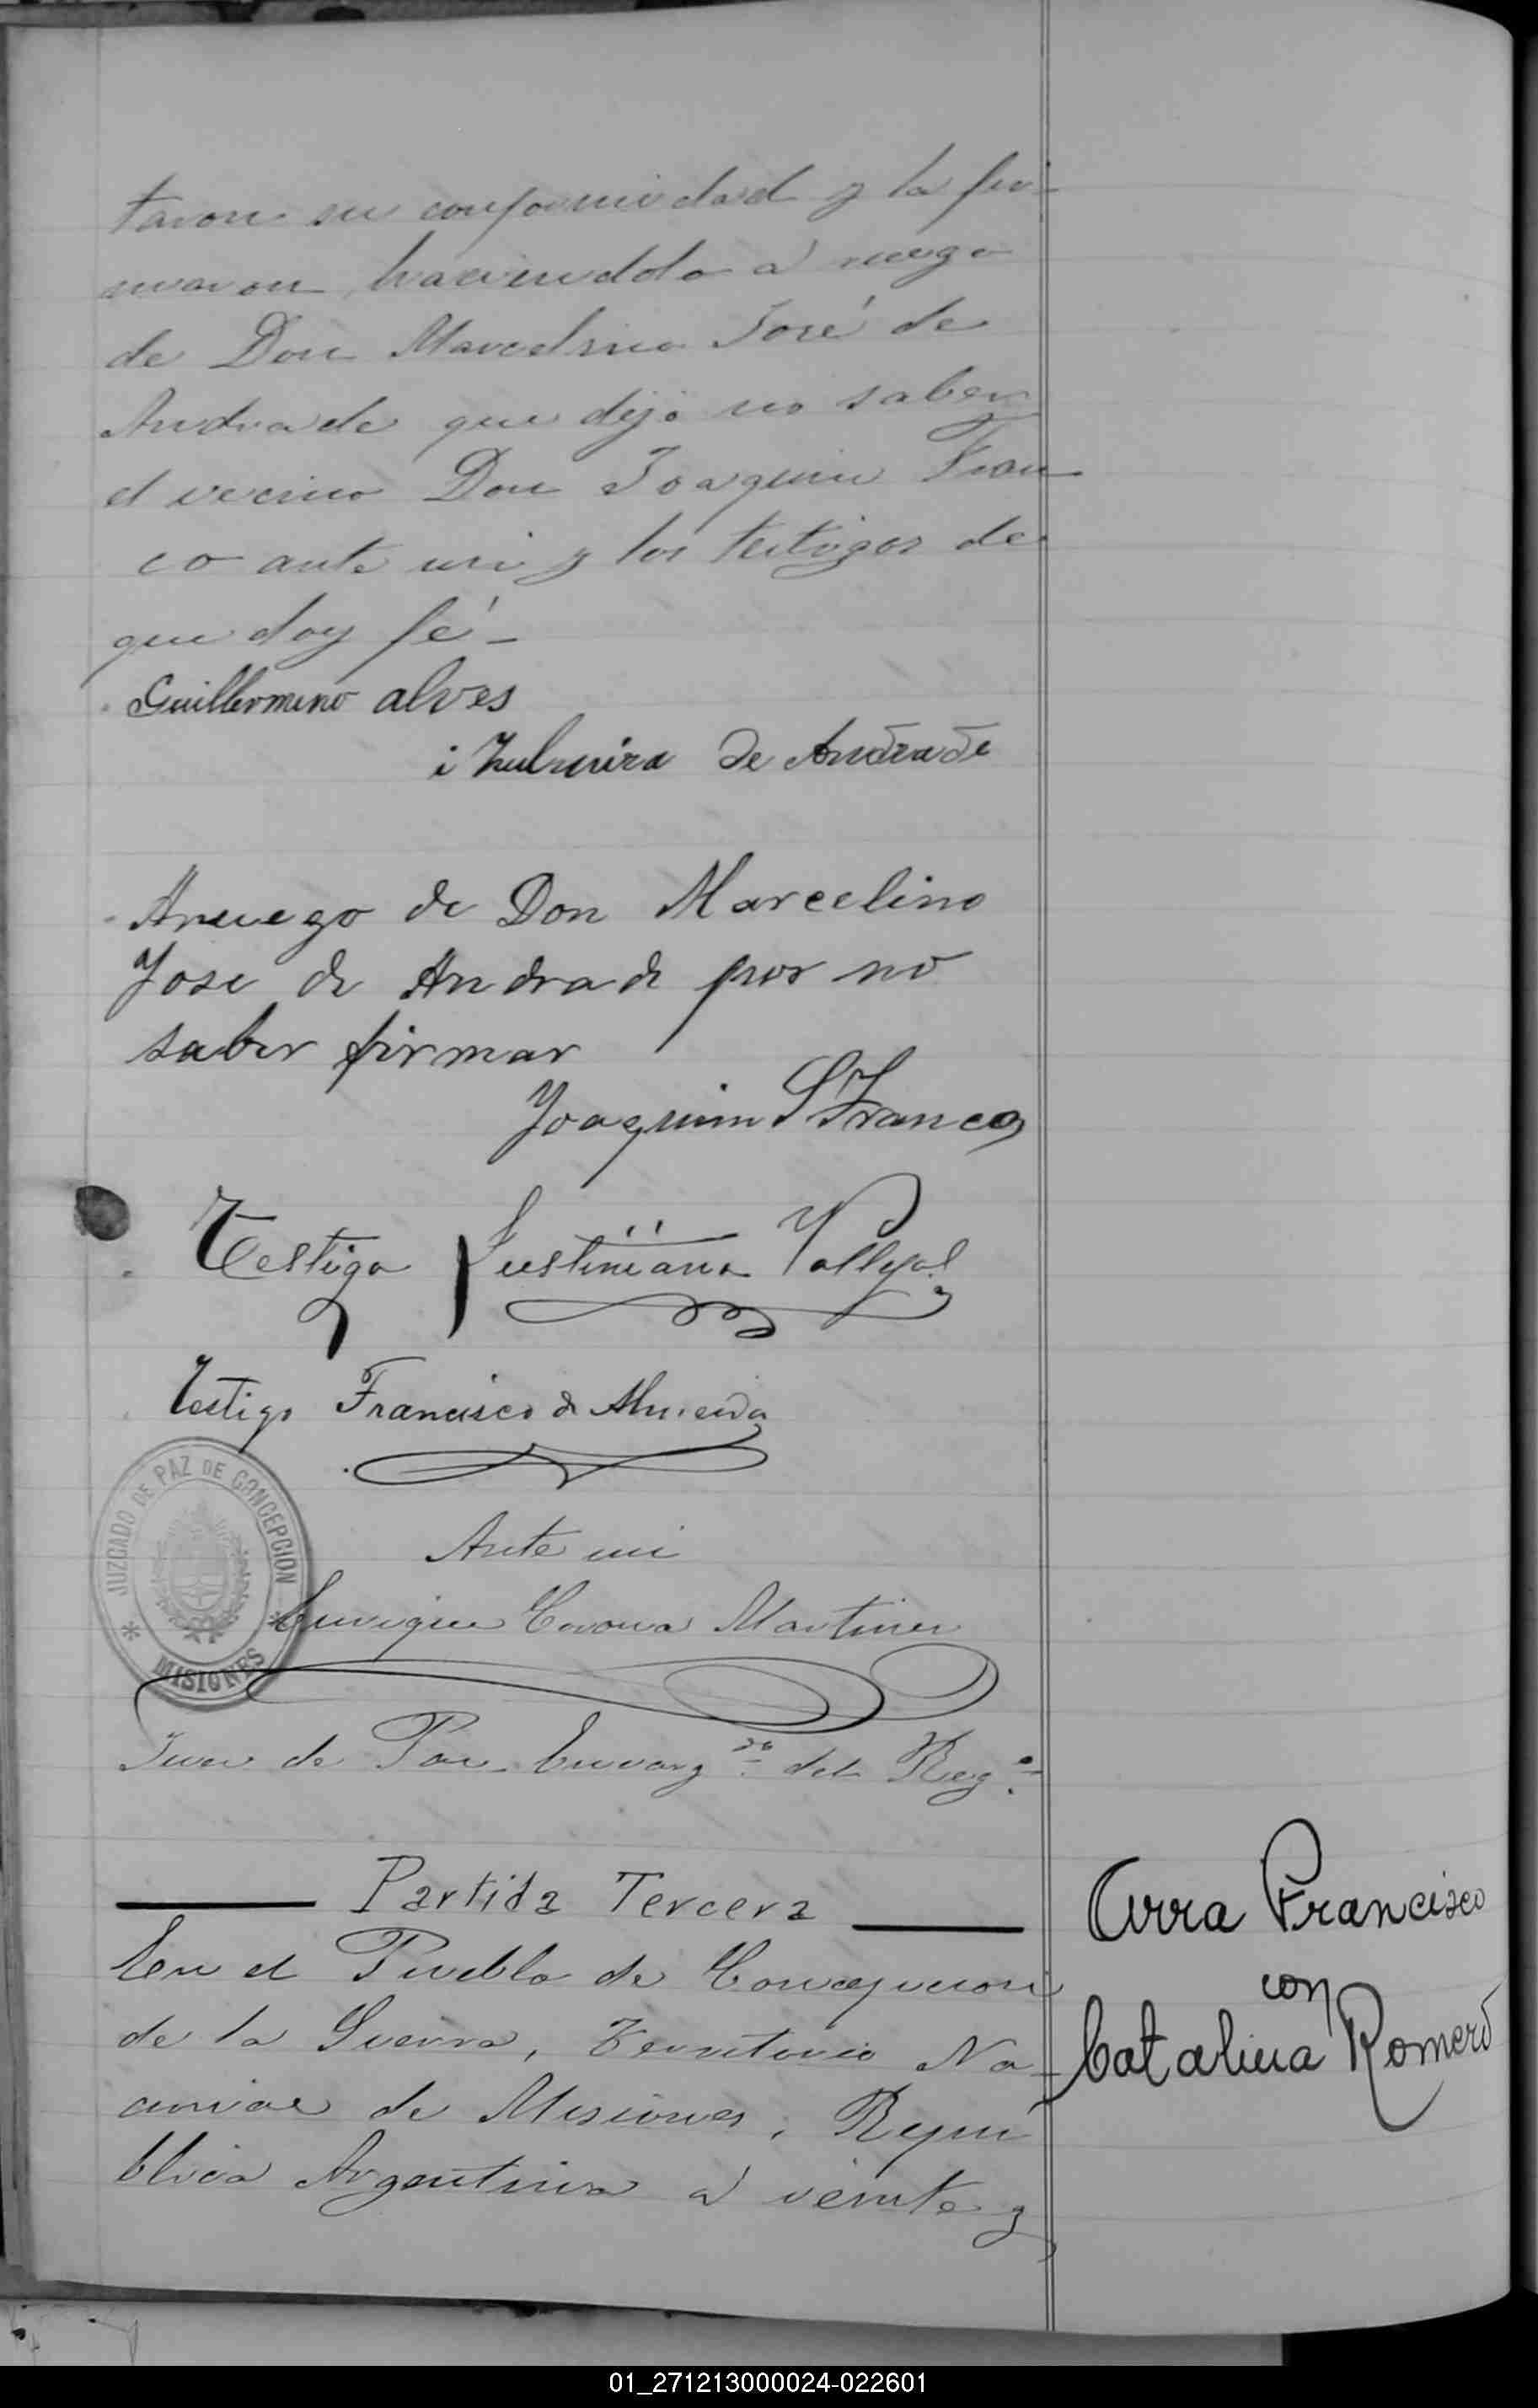 taron su conformidad y la fir-
maron, haciendolo a ruego
de Don Marcelino José de
Andrade que dijo no saber
el vecino Don Joaquin Fran
co ante mi y los testigos de
que doy fé -
Guillermino alves
Zulmira de Andrade
Aruego de Don Marcelino
Jose de Andrade por no
saber firmar
Joaquim S Franco
Testigo Justiniano
Testigo Francisco de Almeida
JUZGADO DE PAZ DE CONCEPCION
MISIONES
Ante mi
Enrique Corona Martinez
Juez de Paz Encarg.do del Reg.o
Partida Tercera
En el Pueblo de Concepcion
de la Sierra, Territorio Na-
cional de Misiones, Repú
blica Argentina a veinte y
Francisco
con
Catalina Romero
01_271213000024-022601